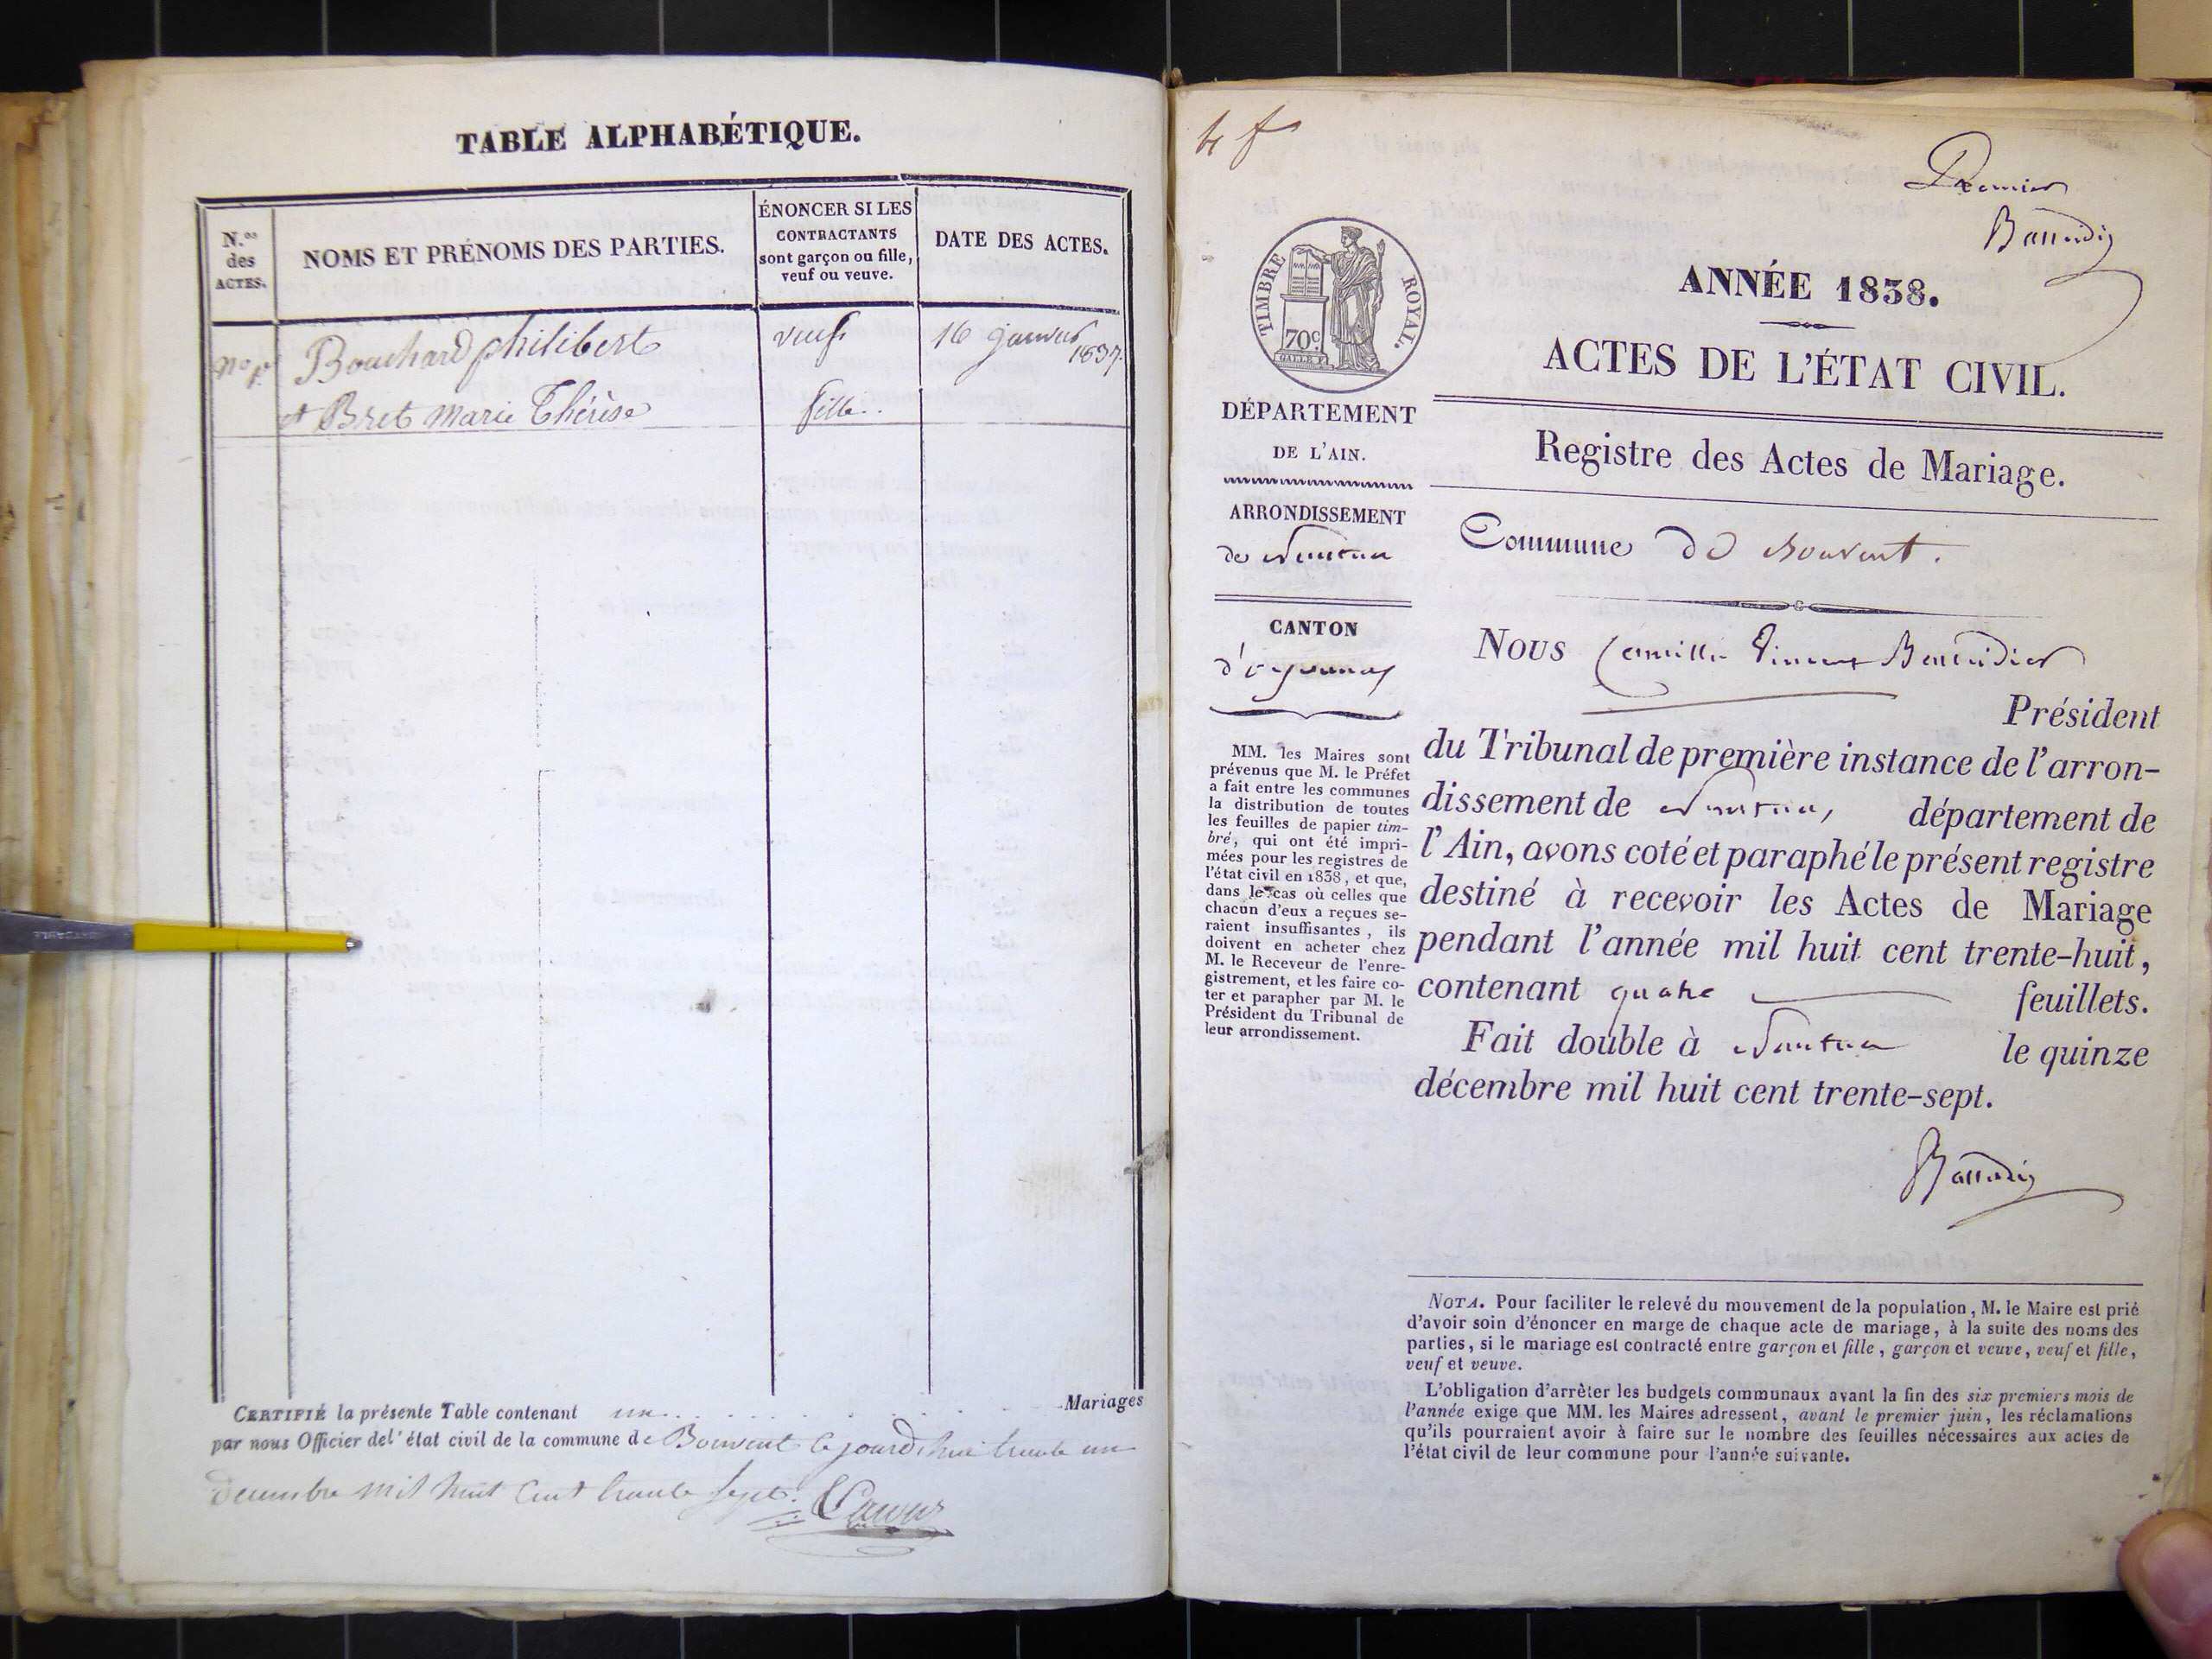 TABLE ALPHABÉTIQUE.
N.os
des
ACTES.
NOMS ET PRÉNOMS DES PARTIES.
ÉNONCER SI LES
CONTRACTANTS
sont garçon ou fille,
veuf ou veuve.
DATE DES ACTES.
No 1er Bouchard philibert veuf 16 janvier 1837.
et Bret Marie Thérèse fille..
CERTIFIÉ la présente Table contenant un Mariages
par nous Officier del'état civil de la commune de Bouvent Cejourdhui trente un
decembre mil huit Cent trente sept.
4 f
Premier
TIMBRE ROYAL.
70c
ANNÉE 1838.
ACTES DE L'ÉTAT CIVIL.
Registre des Actes de Mariage.
DÉPARTEMENT
DE L'AIN.
ARRONDISSEMENT
de Nantua
CANTON
d'oyonnax
MM. les Maires sont
prévenus que M. le Préfet
a fait entre les communes
la distribution de toutes
les feuilles de papier tim-
bré, qui ont été impri-
mées pour les registres de
l'état civil en 1838, et que,
dans le cas où celles que
chacun d'eux a reçues se-
raient insuffisantes, ils
doivent en acheter chez
M. le Receveur de l'enre-
gistrement, et les faire co-
ter et parapher par M. le
Président du Tribunal de
leur arrondissement.
Commune de Bouvent.
Nous Camille Vincent
Président
du Tribunal de première instance de l'arron-
dissement de Nantua, département de
l'Ain, avons coté et paraphé le présent registre
destiné à recevoir les Actes de Mariage
pendant l'année mil huit cent trente-huit,
contenant quatre feuillets.
Fait double à Nantua le quinze
décembre mil huit cent trente-sept.
NOTA. Pour faciliter le relevé du mouvement de la population, M. le Maire est prié
d'avoir soin d'énoncer en marge de chaque acte de mariage, à la suite des noms des
parties, si le mariage est contracté entre garçon et fille, garçon et veuve, veuf et fille,
veuf et veuve.
L'obligation d'arrêter les budgets communaux avant la fin des six premiers mois de
l'année exige que MM. les Maires adressent, avant le premier juin, les réclamations
qu'ils pourraient avoir à faire sur le nombre des feuilles nécessaires aux actes de
l'état civil de leur commune pour l'année suivante.